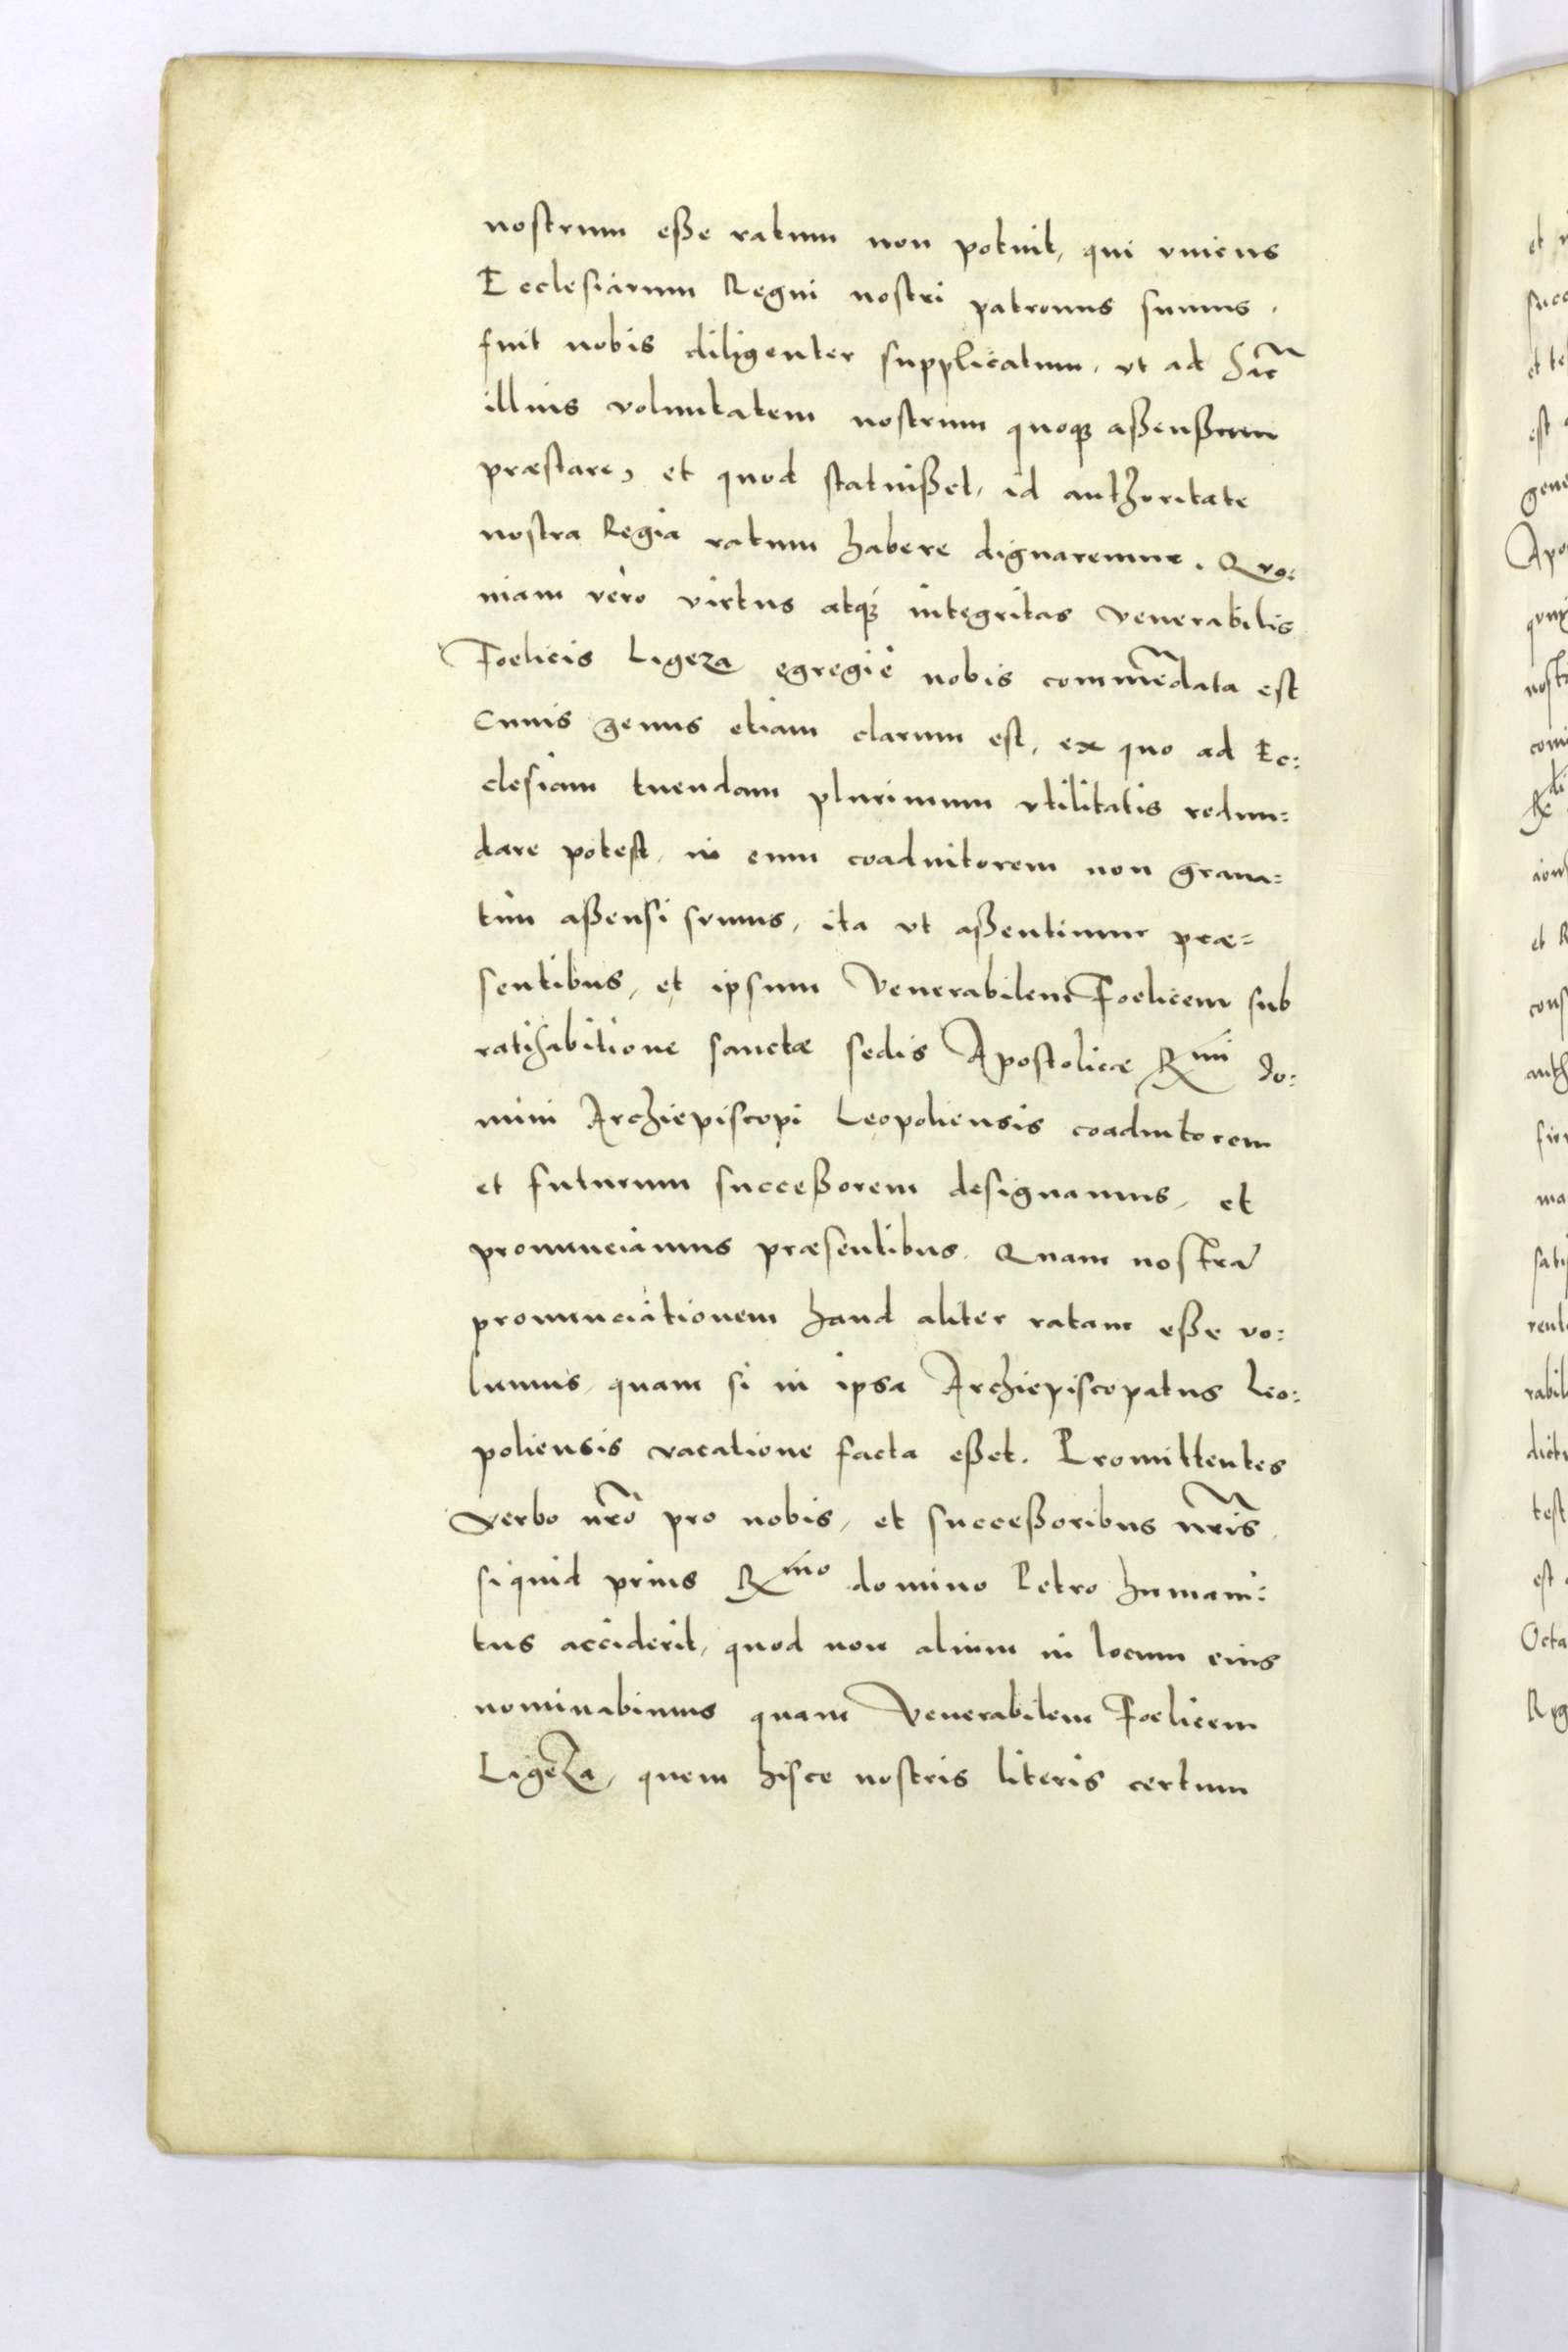 nostrum eße ratum non potuit, qui vnicus
Ecclesiarum Regni nostri patronus sumus.
fuit nobis diligenter supplicatum, vt ad hãc
illius voluntatem nostrum quoqꝫ aßenßum
præstare, et quod statuißet, id authoritate
nostra Regia ratum habere dignaremur. Quo:
niam vero virtus atqꝫ integritas venerabilis
Foelicis Ligeza egregiè nobis commẽdata est
Cuius genus etiam clarum est, ex quo ad Ec:
clesiam tuendam plurimum vtilitatis redun:
dare potest, in eum coadiutorem non graua=
tim aßensi sumus, ita vt aßentimur præ=
sentibus, et ipsum Venerabilem Foelicem sub
ratihabitione sanctæ sedis Apostolicæ Rmi do:
mini Archiepiscopi Leopoliensis coadiutorem
et futurum succeßorem designamus, et
pronunciamus præsentibus. Quam nostrã
pronunciationem haud aliter ratam eße vo:
lumus, quam si in ipsa Archiepiscopatus Leo:
poliensis vacatione facta eßet. Promittentes
verbo nr̃o pro nobis, et succeßoribus nr̃is,
siquid prius Rmo domino Petro humani:
tus acciderit, quod non alium in locum eius
nominabimus quam Venerabilem Foelicem
Ligeza, quem hisce nostris literis certum